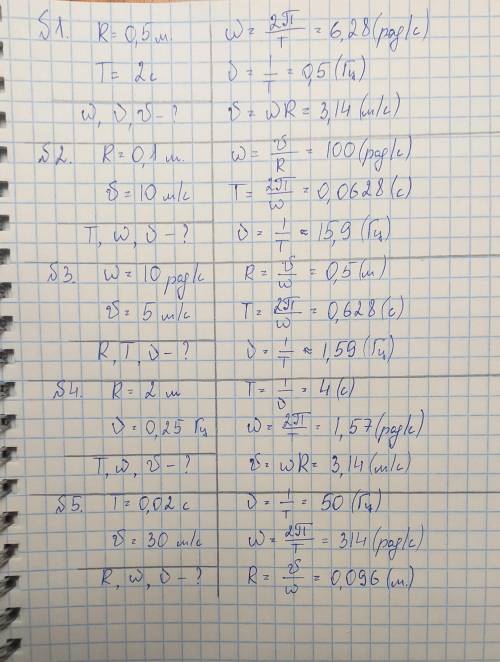 Б1. R = 0,5 м. ω = 2П/T = 6,28 (рад/с)
T = 2 с υ = 1/T = 0,5 (Гц)
ω, υ, v - ? v = ωR = 3,14 (м/с)
Б2. R = 0,1 м. ω = v/R = 100 (рад/с)
v = 10 м/с T = 2П/ω = 0,0628 (с)
T, ω, υ - ? υ = 1/T ≈ 15,9 (Гц)
Б3. ω = 10 рад/с R = v/ω = 0,5 (м)
v = 5 м/с T = 2П/ω = 0,628 (с)
R, T, υ - ? υ = 1/T ≈ 1,59 (Гц)
Б4. R = 2 м T = 1/υ = 4 (с)
υ = 0,25 Гц ω = 2П/T = 1,57 (рад/с)
T, ω, v - ? v = ωR = 3,14 (м/с)
Б5. T = 0,02 с υ = 1/T = 50 (Гц)
v = 30 м/с ω = 2П/T = 314 (рад/с)
R, ω, υ - ? R = v/ω = 0,096 (м.)